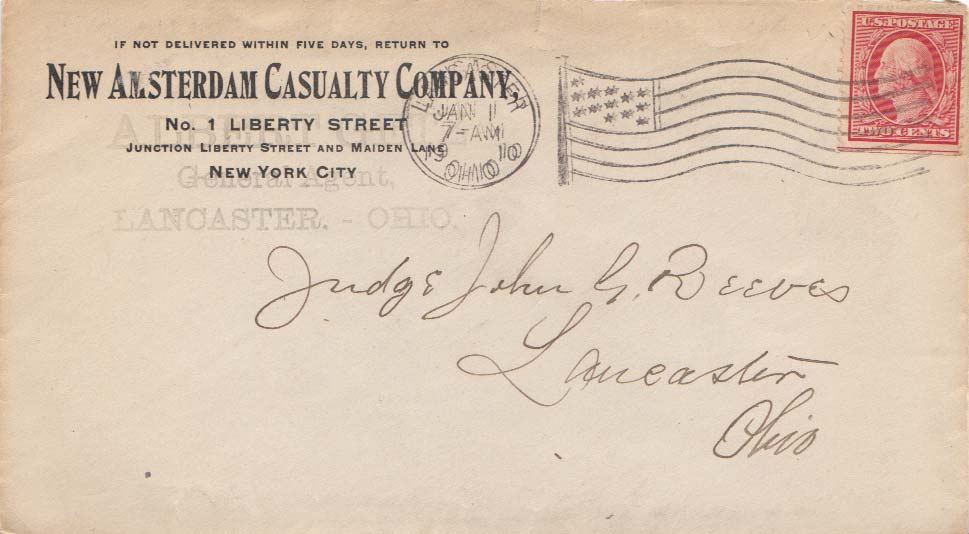 IF NOT DELIVERED WITHIN FIVE DAYS, RETURN TO
NEW AMSTERDAM CASUALTY COMPANY,
No. 1 LIBERTY STREET
JUNCTION LIBERTY STREET AND MAIDEN LANE
NEW YORK CITY
General Agent,
LANCASTER. - OHIO.
LANCASTER
JAN 11
7-AM
1910
OHIO
U.S. POSTAGE
TWO CENTS
Judge John G. Reeves
Lancaster
Ohio